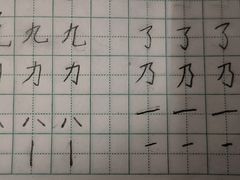 九 九 九 了 了 了
力 力 力 乃 乃 乃
八 八 八 一 一 一
丨 丨 一 一 一